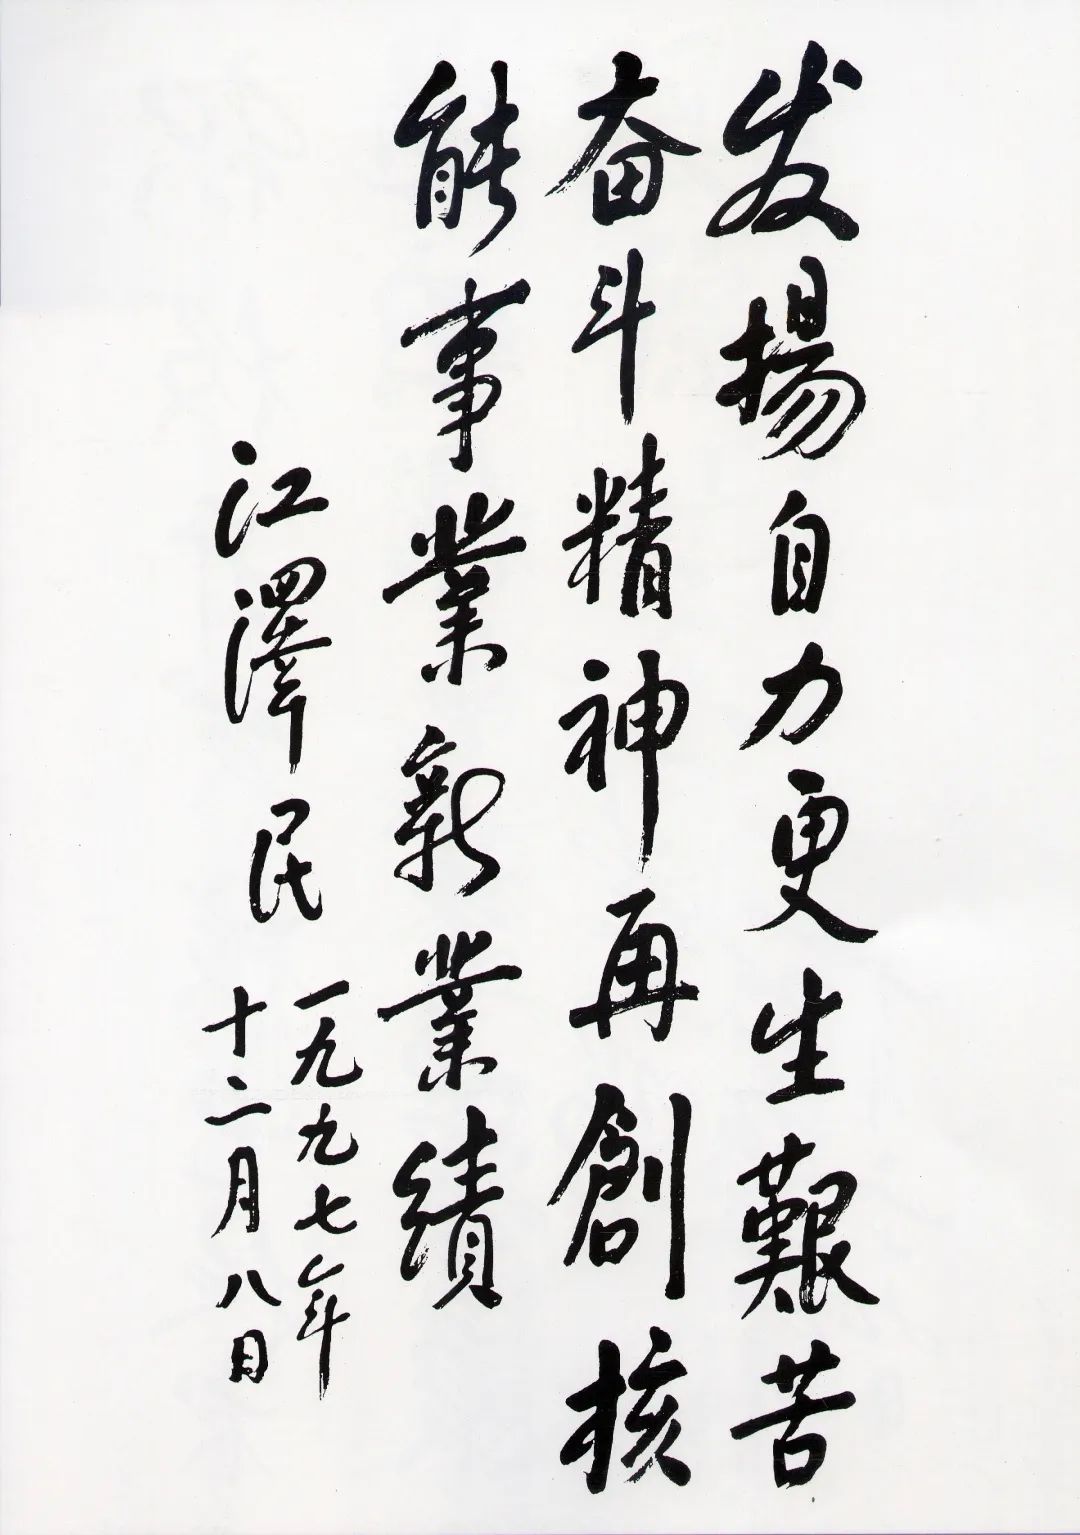 发揚自力更生艱苦
奋斗精神再創核
能事業新業績
江澤民
一九九七年
十二月八日